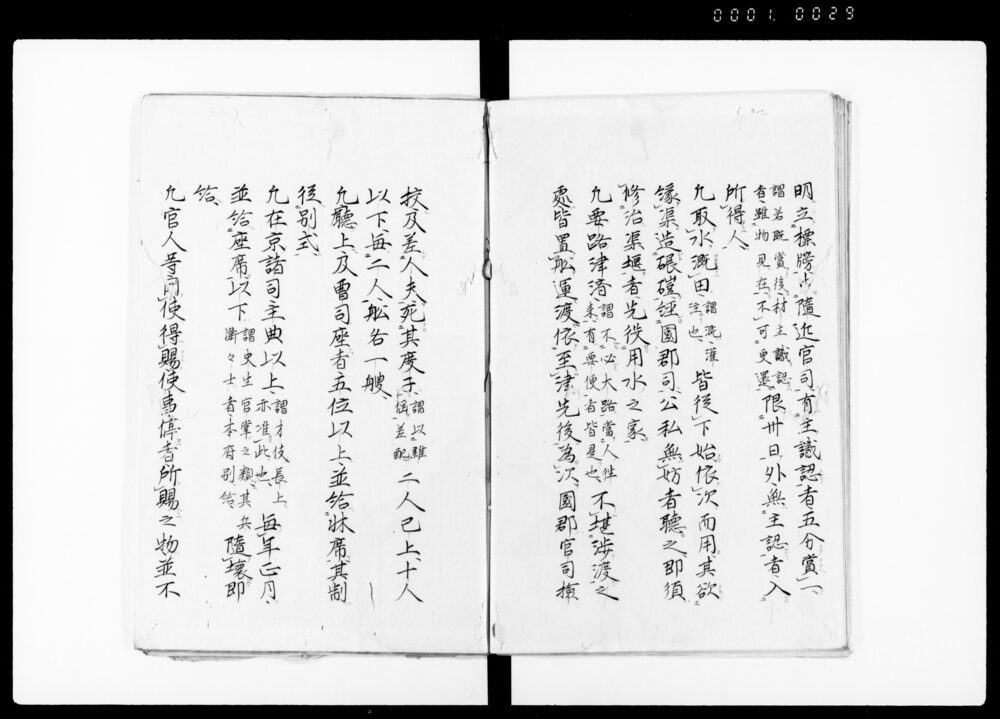 0001.0029
明立標牓於隨近官司有主識認者五分賞一
謂若既賞後材主識認
者雖物見在不可更還
限卅日外無主認者入
所得人
凡取水漑田
謂漑灌
注也
皆從下始依次而用其欲
緣渠造碾磑經國郡司公私無妨者聽之即須
修治渠堰者先役用水之家
凡要路津済
謂不必大路當人往
来有要便者皆是也
不堪渉渡之
處皆置舩運渡依至津先後為次國郡官司撿
挍及差人夫充其度子
謂以雜
徭差配
二人已上十人
以下毎二人舩各一艘
凡廳上及曹司座者五位以上並給牀席其制
従別式
凡在京諸司主典以上
謂才伎長上
亦准此也
毎年正月
並給座席以下
謂史生官掌之類其兵
衛々士者本府別給
隨壊即
給
凡官人等因使得賜使事停者所賜之物並不